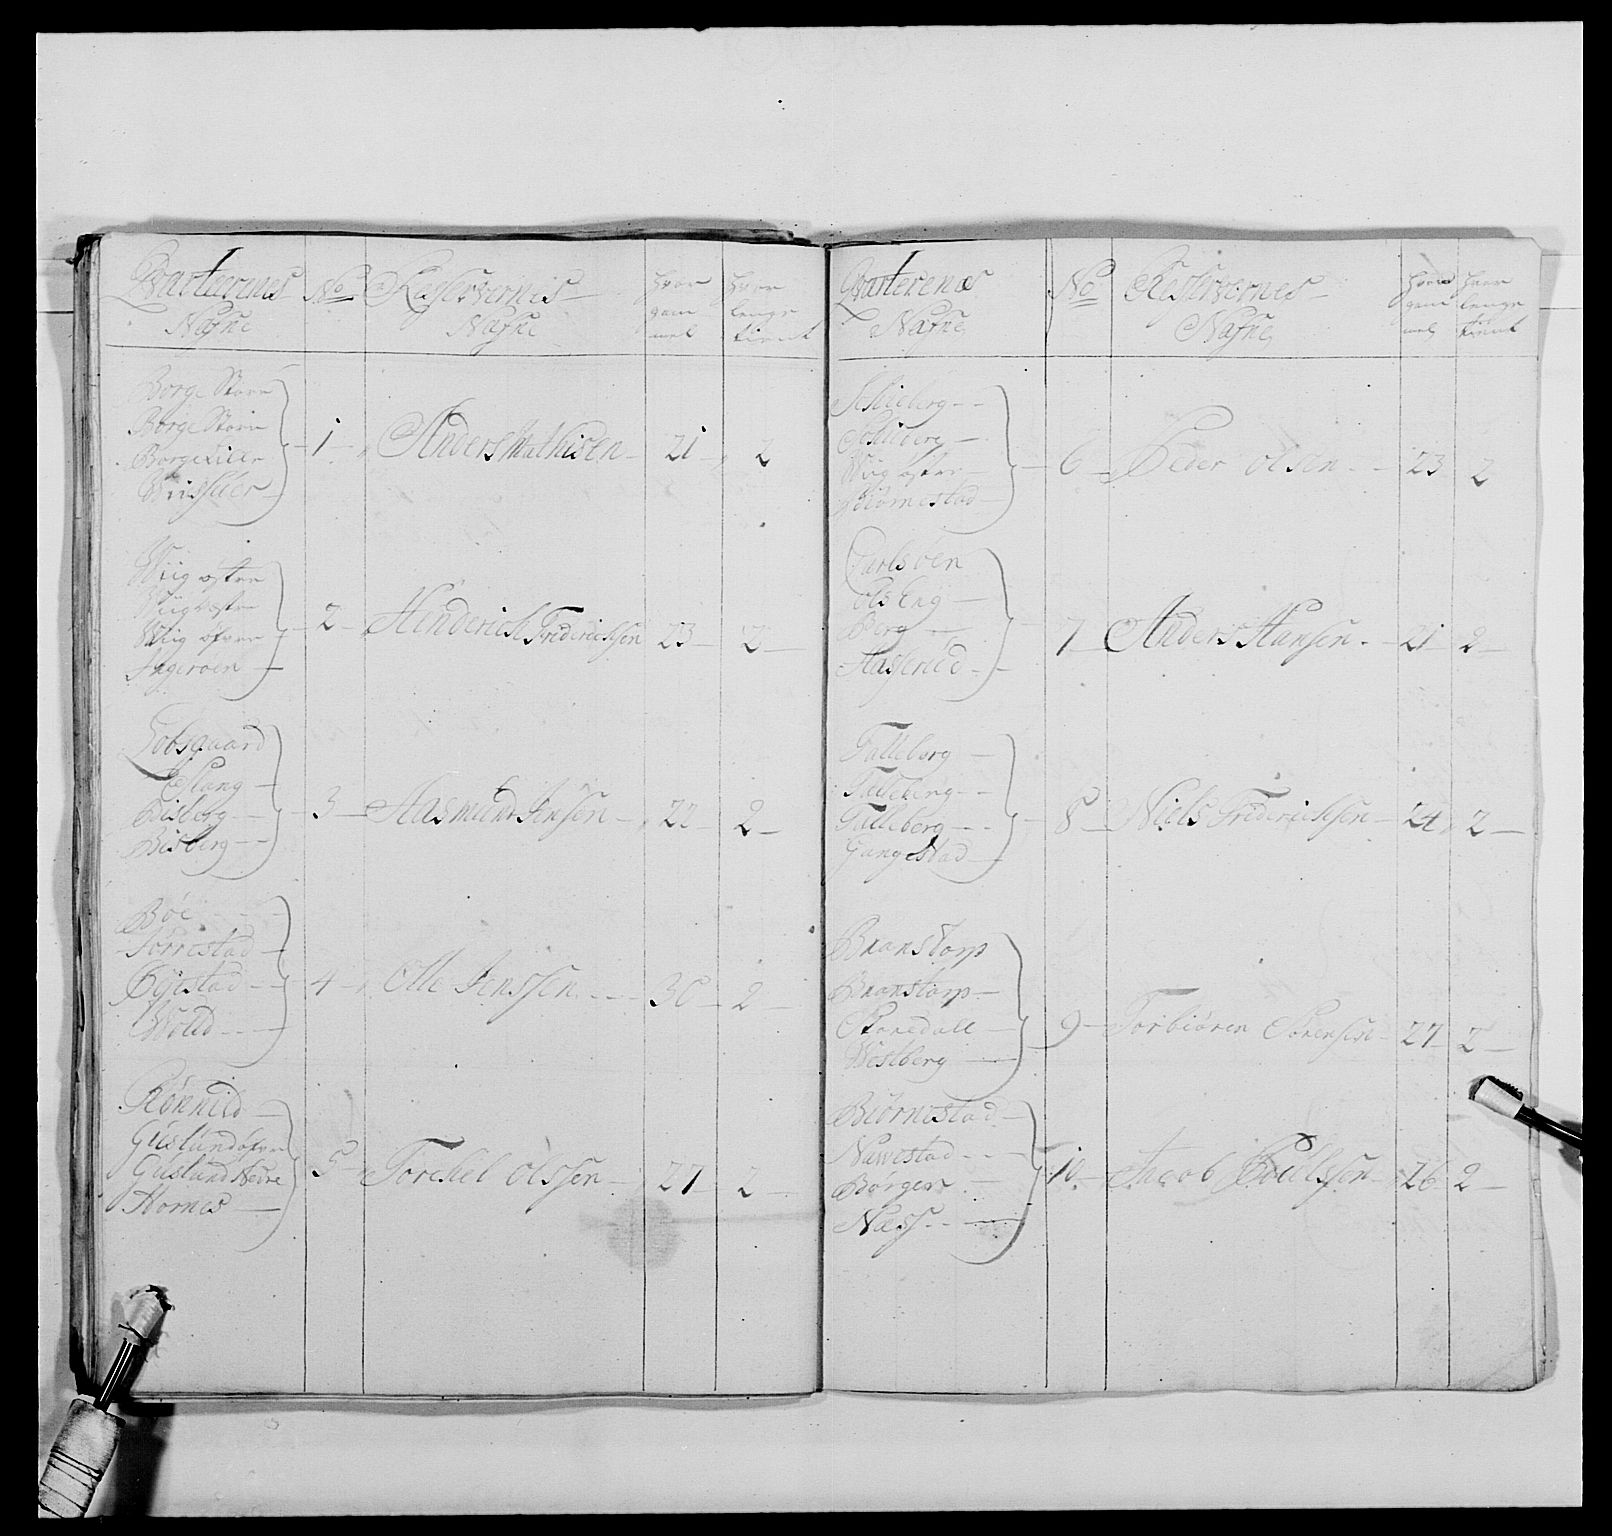 Qvarteernes Nafne | No | Resservernis Nafne | hvor gam mel | hvor lenge tient
Borge Store
Borge Store
Borge Lille
Wiissler
1 Anders Mathisen 21 2
Wiig østre
Wiig vestre
Wiig øfvre
Ingeroen
2 Henderich Friderichsen 23 2
Lobsgaard
Eslang
Bisberg
Bisberg
3 Aasmund Jensen 22 2
Böe
Torrestad
Wold
4 Olle Jenssen 30 2
Rønnild
Guslund øfvre
Guslund Nedre
Hornes
5 Torchel Olssen 27 2
Qvarterenes Nafne | No | Resservernes Nafne | hvor gam mel | hvor lenge tient
Schieberg
Schieberg
Wiig østre
Biørnestad
6 Peder Olsen 23 2
Carlsöen
Olseng
Berg
Hasserud
7 Anders Hansen 21 2
Talleberg
Talleberg
Talleberg
Gangestad
8 Niels Friderichsen 24 2
Branstorp
Branstorp
Skonedall
Westberg
9 Torbiören Sörensen 27 2
Biörnestad
Nawestad
Borgen
Næss
10 Jacob Poulssen 26 2